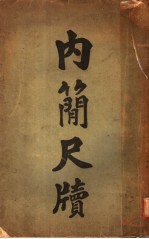 内簡尺牘